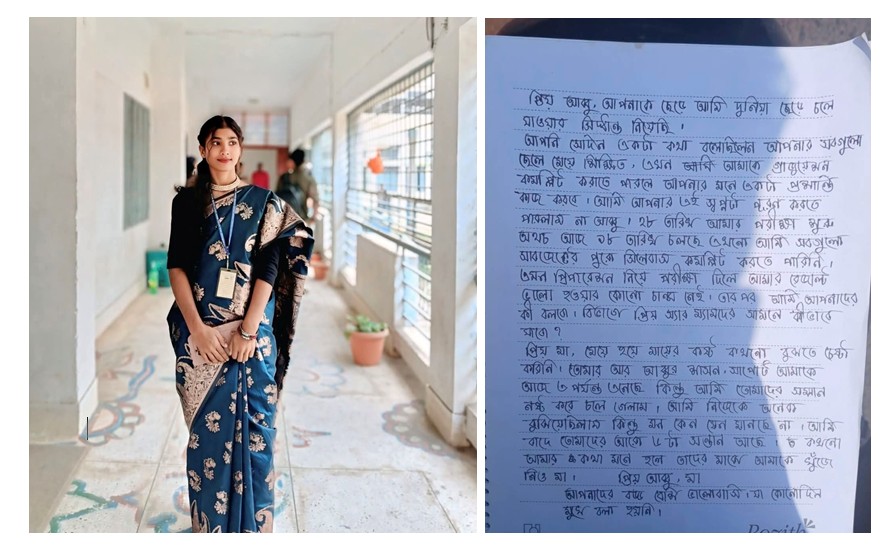 প্রিয় আব্বু, আপনাকে ছেড়ে আমি দুনিয়া ছেড়ে চলে
যাওয়ার সিদ্ধান্ত নিয়েছি।
আপনি সেদিন একটা কথা বলেছিলেন আপনার সবগুলো
ছেলে মেয়ে শিক্ষিত, এখন আমাকে গ্রাজুয়েশন
কমপ্লিট করাতে পারলে আপনার মনে একটা প্রশান্তি
কাজ করবে। আমি আপনার এই স্বপ্নটা পূরণ করতে
পারলাম না আব্বু। ২৮ তারিখ আমার পরীক্ষা শুরু
অথচ আজ ১৮ তারিখ চলছে এখনো আমি সবগুলো
সাবজেক্টের পুরো সিলেবাস কমপ্লিট করতে পারিনি।
এমন প্রিপারেশন নিয়ে পরীক্ষা দিলে আমার রেজাল্ট
ভালো হওয়ার কোনো চান্স নেই। তারপর আমি আপনাদের
কী বলবো, বিভাগে প্রিয় স্যার ম্যামদের সামনে কীভাবে
যাবো?
প্রিয় মা, মেয়ে হয়ে মায়ের কষ্ট কখনো বুঝতে চেষ্টা
করিনি। তোমার আর আব্বুর সাপোর্ট আমাকে
আজ এ পর্যন্ত এনেছে কিন্তু আমি তোমাদের সম্মান
নষ্ট করে চলে গেলাম। আমি নিজেকে অনেক
বুঝিয়েছিলাম কিন্তু মন কেন যেন মানছে না। আমি
বাদে তোমাদের আরো ৫টা সন্তান আছে। কখনো
আমার কথা মনে হলে তাদের মাঝে আমাকে খুঁজে
নিও মা। প্রিয় আব্বু, মা
আপনাদের বড্ড বেশি ভালোবাসি যা কোনোদিন
মুখে বলা হয়নি।